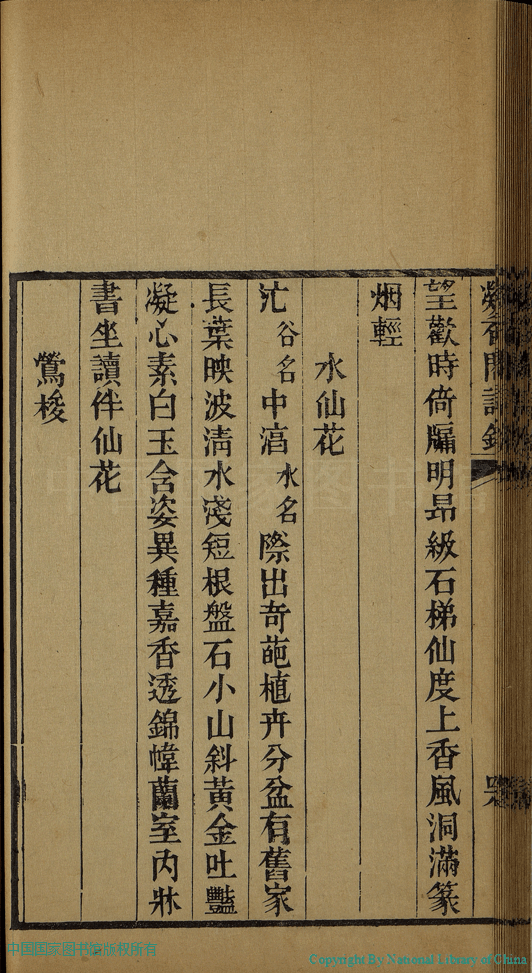 凝香閣詩鈔
望歡時倚牖明昂級石梯仙度上香風洞滿篆
烟輕
水仙花
谷名中滈水名際出奇葩植卉分盆有舊家
長葉映波清水淺短根盤石小山斜黃金吐豔
凝心素白玉含姿異種嘉香透錦幃蘭室內牀
書坐讀伴仙花
鶯梭
中国国家图书馆
中国国家图书馆版权所有
Copyright By National Library of China